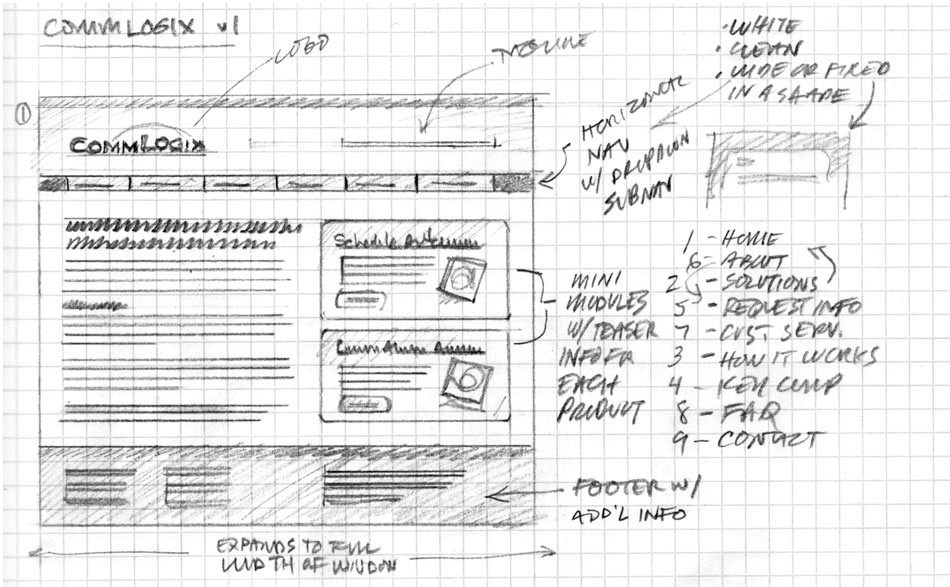 COMMLOGIX v1
LOGO
TAGLINE
• WHITE
• CLEAN
• WIDE OR FIXED
IN A SHAPE
①
COMMLOGIX
HORIZONTAL
NAV
W/ DROPDOWN
SUBNAV
Schedule
MINI
MODULES
W/ TEASER
INFO FOR
EACH
PRODUCT
1 - HOME
6 - ABOUT
2 - SOLUTIONS
5 - REQUEST INFO
7 - CUST. SERV.
3 - HOW IT WORKS
4 - KEY COMP
8 - FAQ
9 - CONTACT
FOOTER W/
ADD'L INFO
EXPANDS TO FULL
WIDTH OF WINDOW